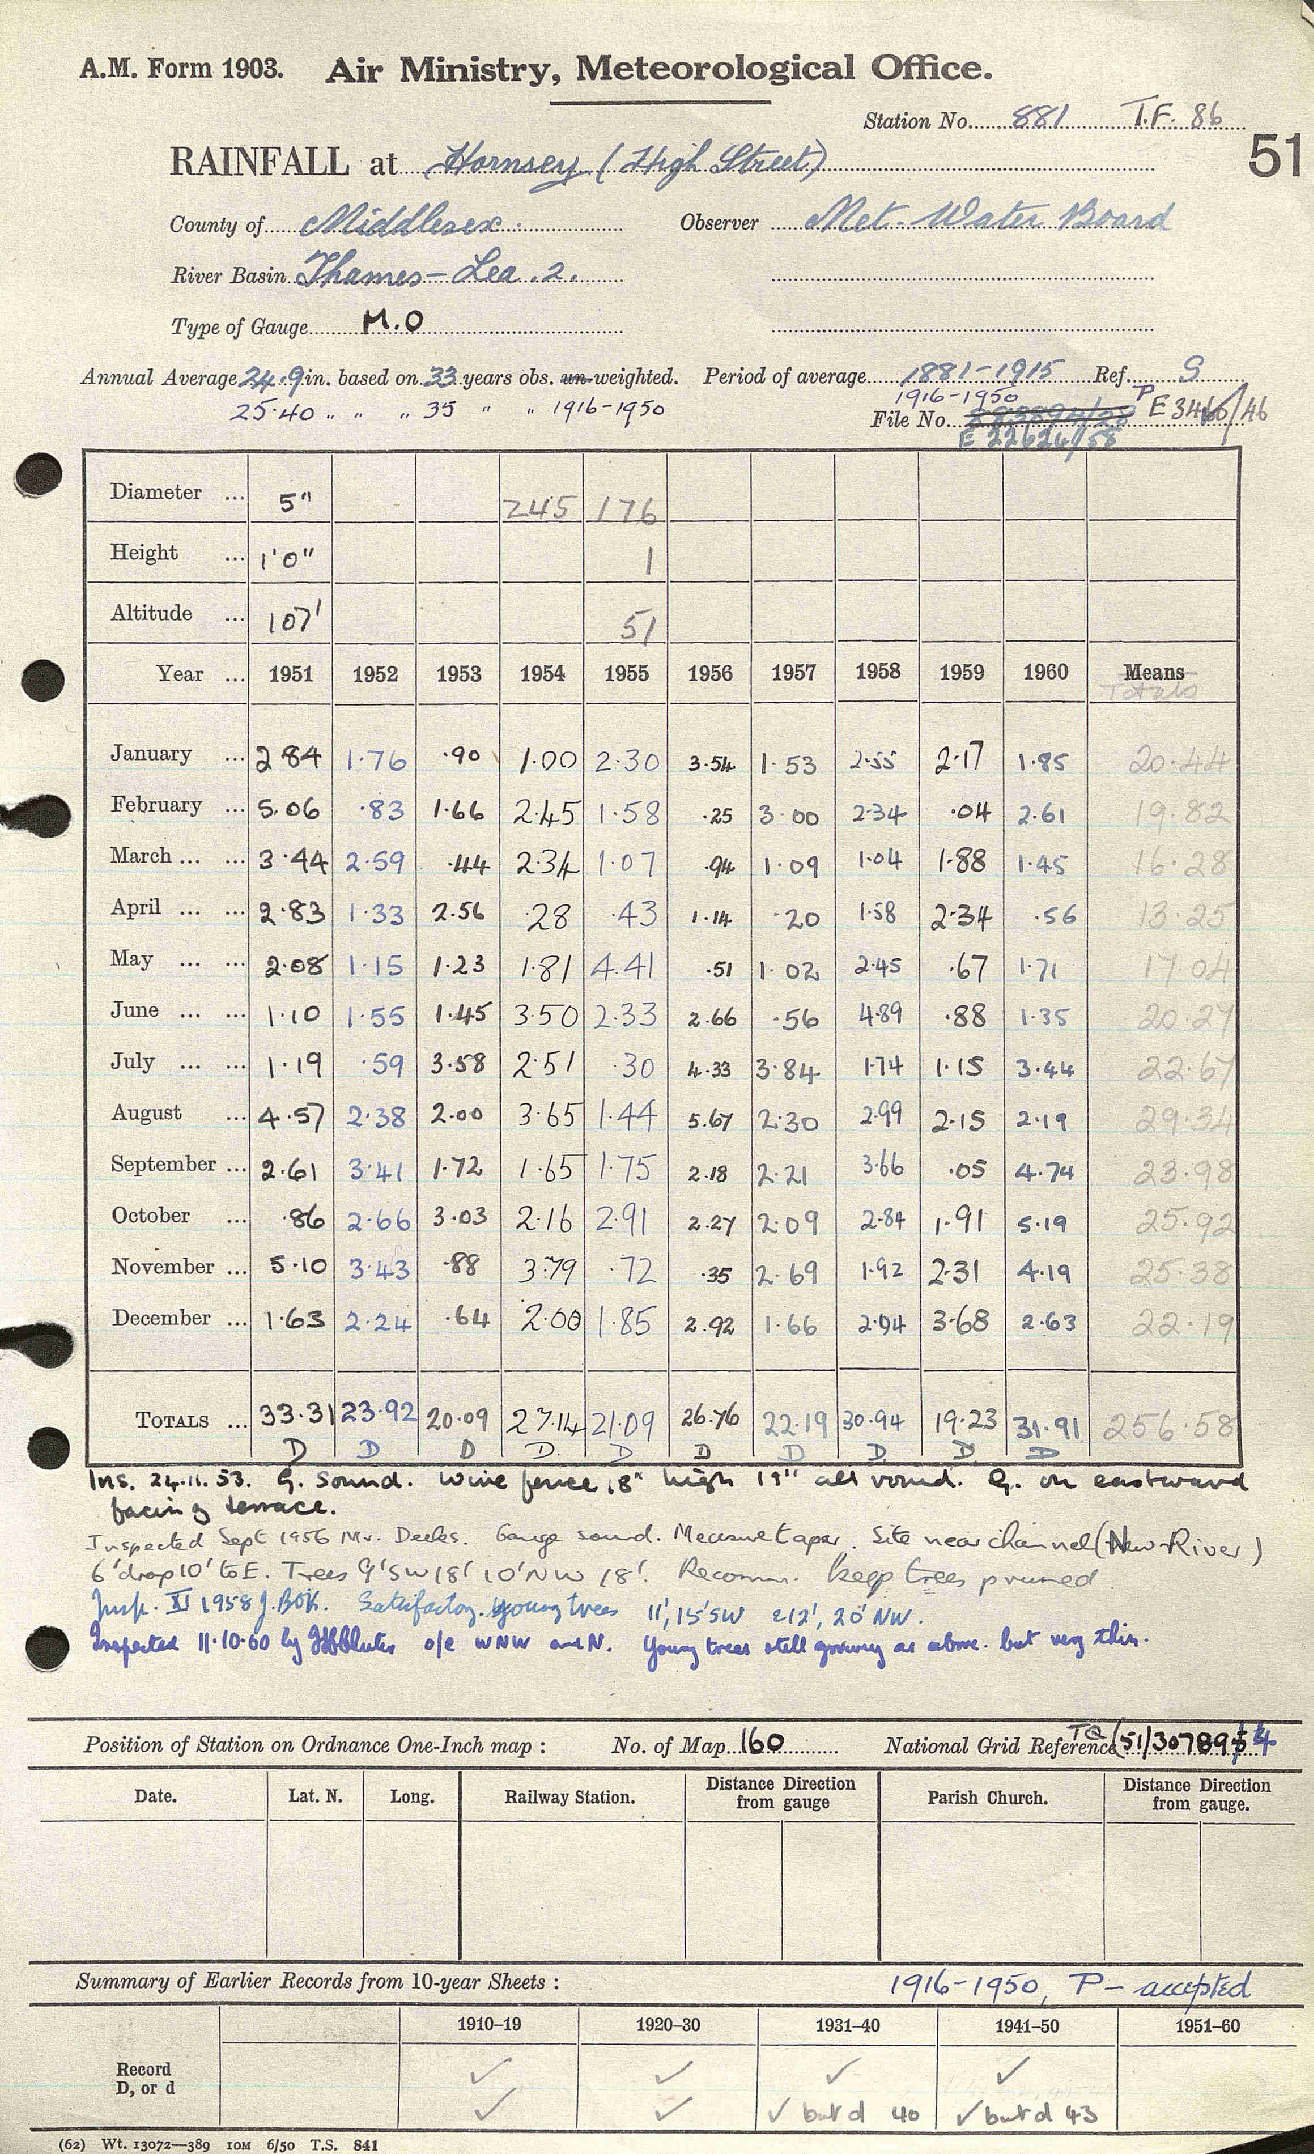 A.M. Form 1903. Air Ministry, Meteorological Office.
Station No. 881 T.F. 86
51
RAINFALL at Hornsey (High Street)
County of Middlesex. Observer Met. Water Board
River Basin Thames-Lea .2.
Type of Gauge M.O
Annual Average 24.9 in. based on 33 years obs. un-weighted. Period of average 1881-1915 Ref. S
25.40 " " " 35 " " 1916-1950 1916-1950
File No. P E 3466/46
E 22624/58
Diameter ... 5" 245 176
Height ... 1'0" 1
Altitude ... 107' 51
Year ... 1951 1952 1953 1954 1955 1956 1957 1958 1959 1960 Means
Totals
January ... 2 84 1.76 .90 1.00 2.30 3.54 1.53 2.55 2.17 1.85 20.44
February ... 5.06 .83 1.66 2.45 1.58 .25 3.00 2.34 .04 2.61 19.82
March ... ... 3.44 2.59 .44 2.34 1.07 .94 1.09 1.04 1.88 1.45 16.28
April ... ... 2.83 1.33 2.56 .28 .43 1.14 .20 1.58 2.34 .56 13.25
May ... ... 2.08 1.15 1.23 1.81 4.41 .51 1.02 2.45 .67 1.71 17.04
June ... ... 1.10 1.55 1.45 3.50 2.33 2.66 .56 4.89 .88 1.35 20.27
July ... ... 1.19 .59 3.58 2.51 .30 4.33 3.84 1.74 1.15 3.44 22.67
August ... 4.57 2.38 2.00 3.65 1.44 5.67 2.30 2.99 2.15 2.19 29.34
September ... 2.61 3.41 1.72 1.65 1.75 2.18 2.21 3.66 .05 4.74 23.98
October ... .86 2.66 3.03 2.16 2.91 2.27 2.09 2.84 1.91 5.19 25.92
November ... 5.10 3.43 .88 3.79 .72 .35 2.69 1.92 2.31 4.19 25.38
December ... 1.63 2.24 .64 2.00 1.85 2.92 1.66 2.94 3.68 2.63 22.19
TOTALS ... 33.31 23.92 20.09 27.14 21.09 26.76 22.19 30.94 19.23 31.91 256.58
D D D D. D D D D D D
Ins. 24.11.53. G. sound. Wire fence 18" high 19" all round. G. on eastward
facing terrace.
Inspected Sept 1956 Mr. Decks. Gauge sound. Measure taper. Site near channel (New River)
6' drop 10' to E. Trees 9' SW 18' 10' NW 18'. Recomm. keep trees pruned
Insp. XI 1958 J. BOK. Satisfactory. young trees 11', 15' SW 212', 20' NW.
Inspected 11.10.60 by o/e WNW and N. Young trees still growing as above. but very thin.
Position of Station on Ordnance One-Inch map : No. of Map 160 National Grid Reference TQ (51/307894
Date. Lat. N. Long. Railway Station. Distance Direction from gauge Parish Church. Distance Direction from gauge.
Summary of Earlier Records from 10-year Sheets : 1916-1950, P - accepted
1910–19 1920–30 1931–40 1941–50 1951–60
Record ✓ ✓ ✓ ✓
D, or d ✓ ✓ ✓ but d 40 ✓ but d 43
(62) Wt. 13072—389 10M 6/50 T.S. 841